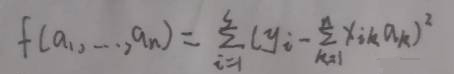 f(a₁,...,aₙ) = Σᵢ₌₁ˢ (yᵢ - Σₖ₌₁ⁿ xᵢₖaₖ)²